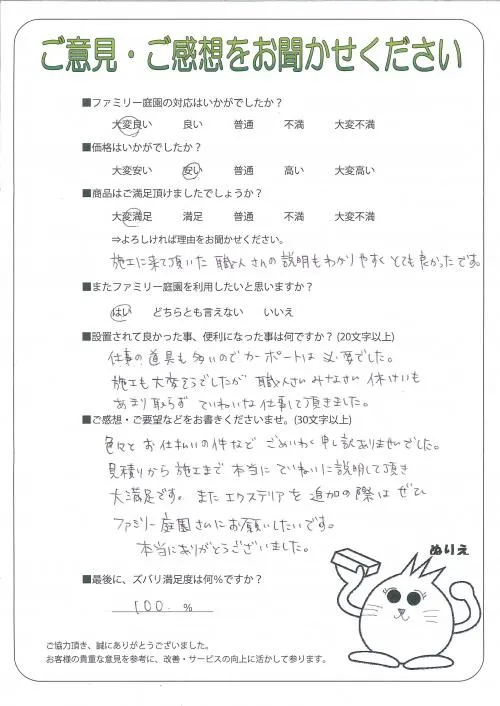 ご意見・ご感想をお聞かせください
■ファミリー庭園の対応はいかがでしたか？
大変良い 良い 普通 不満 大変不満
■価格はいかがでしたか？
大変安い 安い 普通 高い 大変高い
■商品はご満足頂けましたでしょうか？
大変満足 満足 普通 不満 大変不満
⇒よろしければ理由をお聞かせください。
施工に来て頂いた 職人さんの説明もわかりやすくとても良かったです。
■またファミリー庭園を利用したいと思いますか？
はい どちらとも言えない いいえ
■設置されて良かった事、便利になった事は何ですか？(20文字以上)
仕事の道具も多いのでカーポートは必要でした。
施工も大変そうでしたが 職人さんみなさん 休けいも
あまり取らず ていねいな仕事して頂きました。
■ご感想・ご要望などをお書きくださいませ。(30文字以上)
色々と お仕払いの件など ごめいわく申し訳ありませんでした。
見積りから施工まで本当に ていねいに説明して頂き
大満足です。また エクステリア を 追加の際は ぜひ
ファミリー庭園さんにお願いしたいです。
本当にありがとうございました。
ぬりえ
■最後に、ズバリ満足度は何％ですか？
100. %
ご協力頂き、誠にありがとうございました。
お客様の貴重な意見を参考に、改善・サービスの向上に活かして参ります。